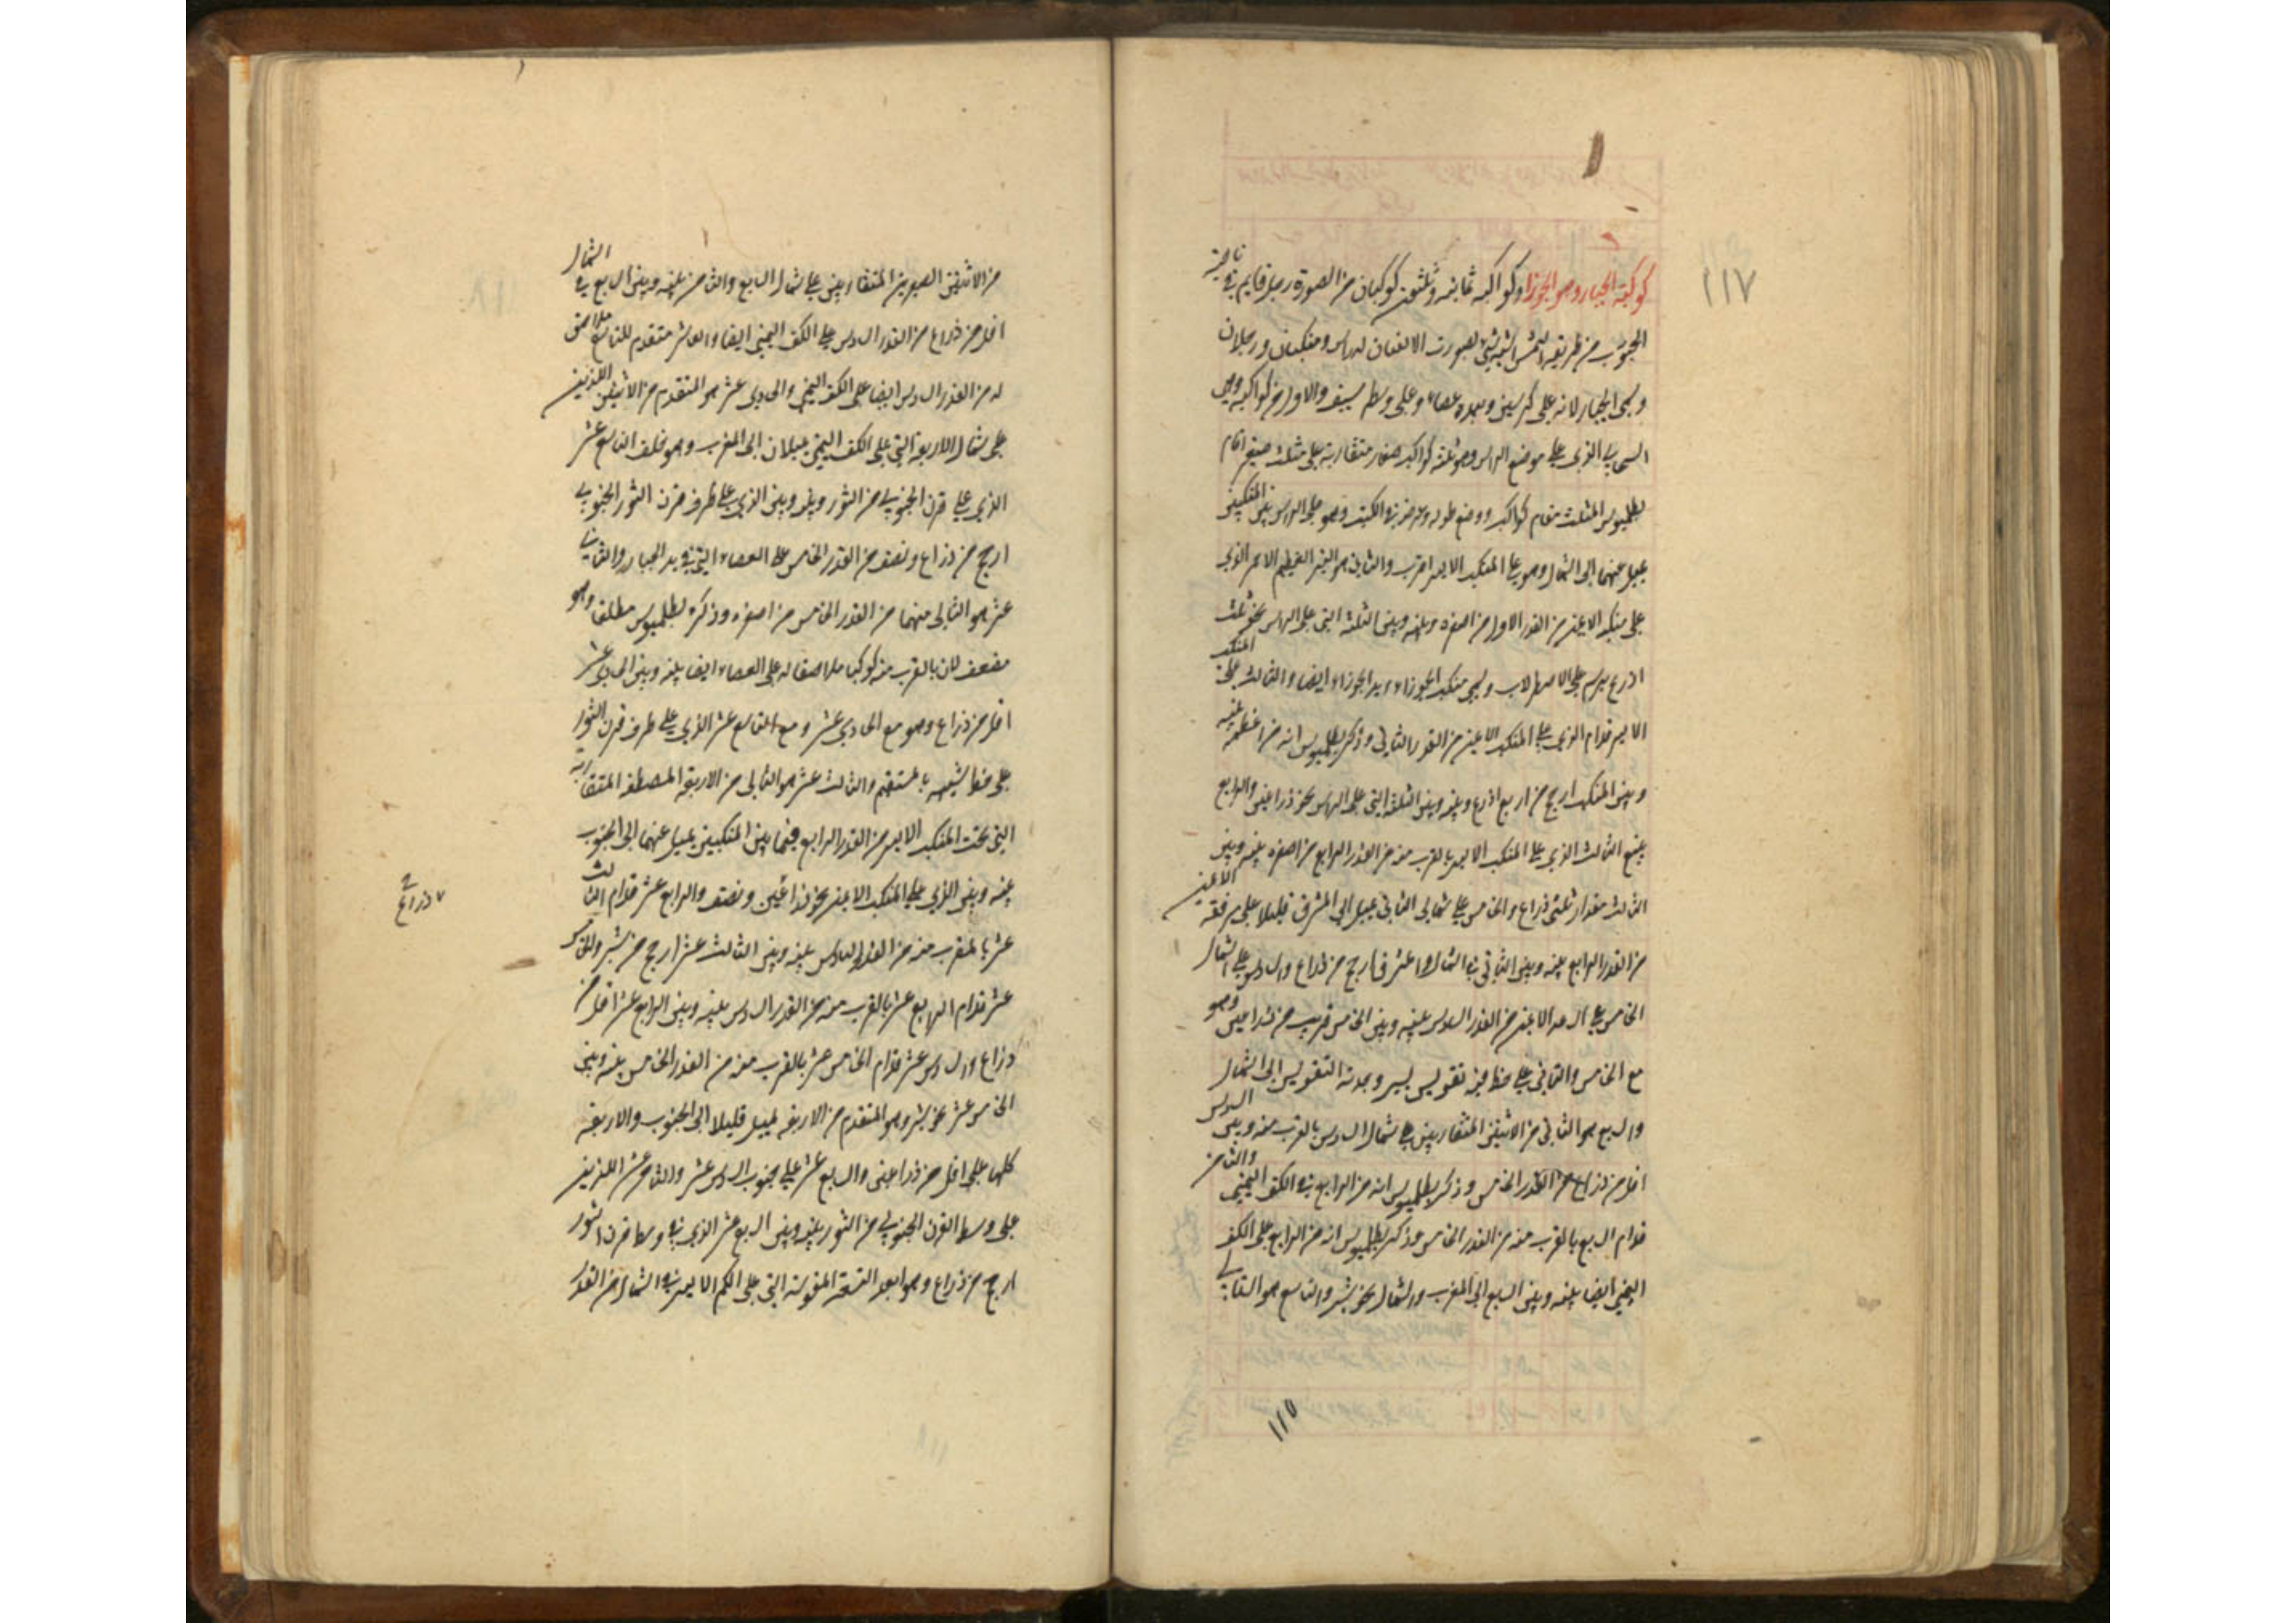 ١١٧
كوكبة الجبار وهو الجوزا وكواكبه ثمانية وثلثون كوكبان من الصورة رجل قايم في ناحية
الجنوب من طريقة الشمس اشبه شئ بصورت الانسان له راس ومنكبان ورجلان
وسمى الجبار لانه على كرسين وبيده عصاء وعلى وسطه سيف والاول من كواكبه وهو
السحابي الذي على موضع الراس وهو ثلثة كواكب صغار متقاربة على مثلث صغير اقام
بطلميوس المثلث مقام كواكب ووضع طوله وعرضه في الكتب وهو على الراس بين المنكبين
يميل عنهما الى الشمال وهو على المنكب الايسر اقرب والثاني هو النير العظيم الاحمر الذي
على منكبه الايمن من القدر الاول من اصغره وبينه وبين الثلثة التي على الراس نحو ثلث
اذرع يرسم على الاصطرلاب ويسمى منكب الجوزاء ويد الجوزاء ايضا والثالث على المنكب
الايسر قدام الذي على المنكب الايمن من القدر الثاني وذكر بطلميوس انه من اعظمه بينه
وبين المنكب ارجح من اربع اذرع وبينه وبين الثلثة التي على الراس نحو ذراعين والرابع
يتبع الثالث الذي على المنكب الايسر بالقرب منه من القدر الرابع من اصغره بينه وبين
الثالث مقدار ثلثي ذراع والخامس على شمالى الثاني يميل الى المشرق قليلا على مرفقه الايمن
من القدر الرابع بينه وبين الثاني في الشمال والمشرق ارجح من ذراع والسادس على الشمال
الخامس على الساعد الايمن من القدر السادس بينه وبين الخامس قريب من ذراعين وهو
مع الخامس والثاني على خط فيه تقويس يسير وحدبة التقويس الى الشمال
والسابع هو الثاني من الاثنين المتقاربين على شمال السادس بالقرب منه وبين السادس
اقل من ذراع من القدر الخامس وذكر بطلميوس انه من الرابع في الكف اليمنى والثامن
قدام السابع بالقرب منه من القدر الخامس وذكر بطلميوس انه من الرابع على الكف
اليمنى ايضا بينه وبين السابع الى المغرب والشمال نحو شبر والتاسع هو التالي
١١٥
من الاثنين الصغيرين المتقاربين على شمال السابع والثامن بينه وبين السابع في الشمال
اقل من ذراع من القدر السادس على الكف اليمنى ايضا والعاشر متقدم للتاسع ملاصق
له من القدر السادس ايضا على الكف اليمنى والحادي عشر هو المتقدم من الاثنين اللذين
على شمال الاربعة التي على الكف اليمنى يميلان الى المغرب وهو خلف التاسع عشر
الذي على قرن الجنوبي من الثور وبينه وبين الذي على طرف قرن الثور الجنوبي
ارجح من ذراع ونصف من القدر الخامس على العصاء التي في يد الجبار والثاني
عشر هو التالى منهما من القدر الخامس من اصغره وذكره بطلميوس مطلقا وهو
مضعف لان بالقرب منه كوكبا ملاصقا له على العصاء ايضا بينه وبين الحادي عشر
اقل من ذراع وهو مع الحادي عشر ومع التاسع عشر الذي على طرف قرن الثور
على خط شبيه بالمستقيم والثالث عشر هو التالى من الاربعة المصطفة المتقاربة
التي تحت المنكب الايسر من القدر الرابع فيما بين المنكبين يميل عنهما الى الجنوب
بينه وبين الذي على المنكب الايمن نحو ذراعين ونصف والرابع عشر قدام الثالث
٧ ذراع
عشر بالقرب منه من القدر السادس بينه وبين الثالث عشر ارجح من شبر والخامس
عشر قدام الرابع عشر بالقرب منه من القدر السادس بينه وبين الرابع عشر اقل من
ذراع والسادس عشر قدام الخامس عشر بالقرب منه من القدر الخامس بينه وبين
الخامس عشر نحو شبر وهو المتقدم من الاربعة يميل قليلا الى الجنوب والاربعة
كلها على اقل من ذراعين والسابع عشر على جنوب السادس عشر والثامن عشر اللذين
على وسط القرن الجنوبي من الثور بينه وبين السابع عشر الذي في وسط قرن الثور
ارجح من ذراع وهو ابعد التسعة المقوسة التي على الكم الايسر في الشمال من القدر